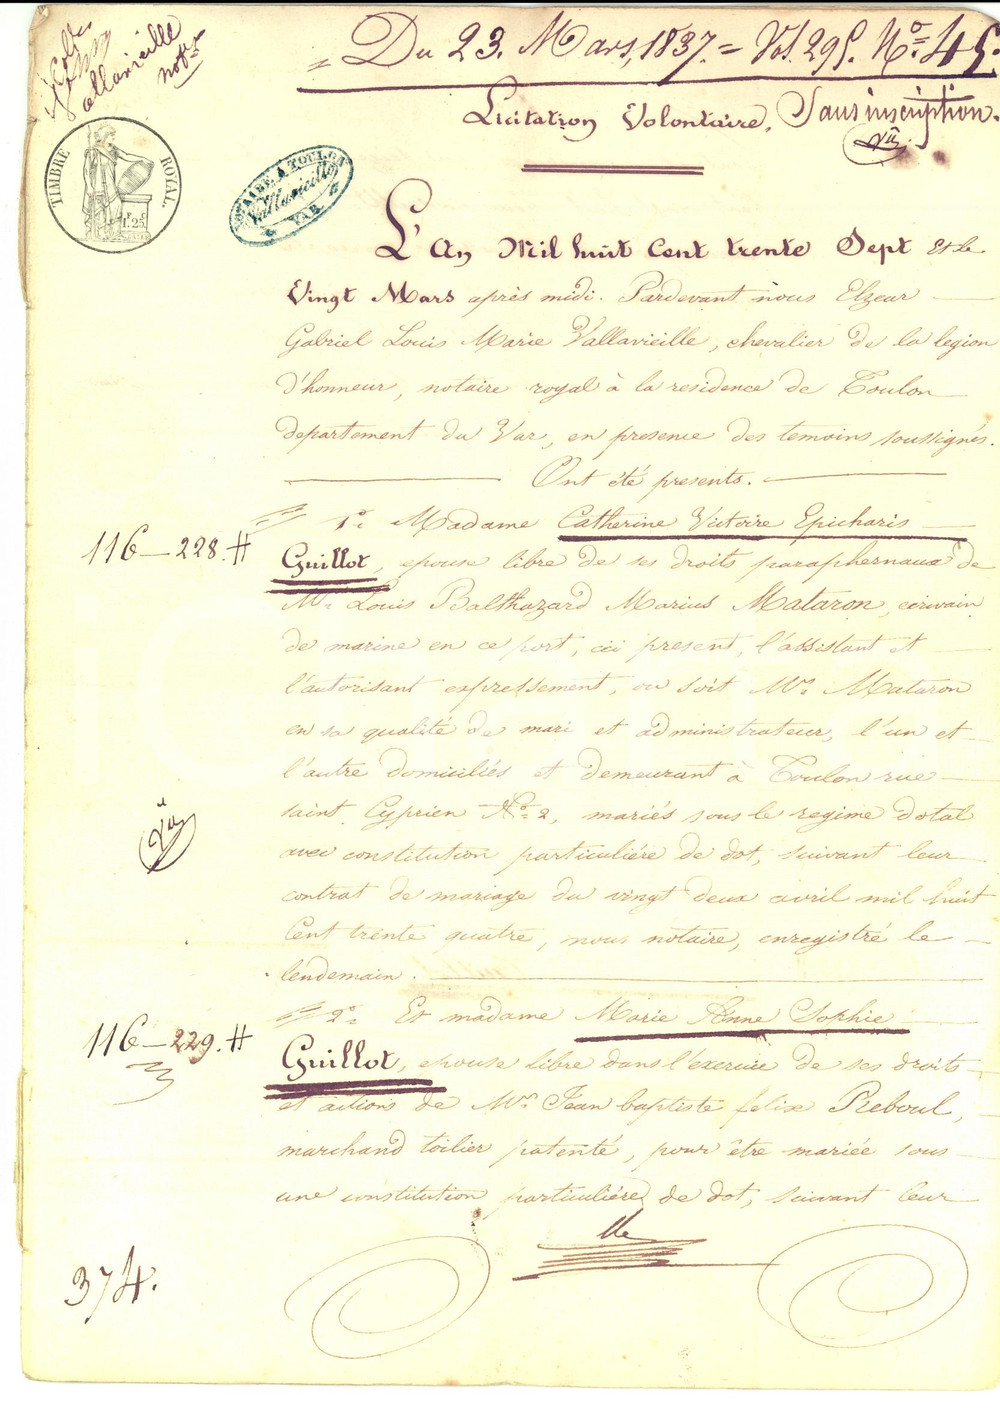 = Du 23. Mars, 1837. = Vol. 295. N.º 45.
Vallavieille
not.re
Licitation Volontaire, Sans inscription.
Vu
TIMBRE ROYAL
1.25
NOTAIRE A TOULON
Vallavieille
VAR
L'An Mil huit Cent trente Sept Et le
Vingt Mars après midi. Pardevant nous Elzear
Gabriel Louis Marie Vallavieille, chevalier de la legion
d'honneur, notaire royal à la residence de Toulon
departement du Var, en presence des temoins soussignés.
Ont été presents.
1º. Madame Catherine Victoire Epicharis
116 — 228. #
Guillot, epouse libre de ses droits paraphernaux de
Mr. Louis Balthazard Marius Mataron, ecrivain
de marine en ce port, ici present, l'assistant et
l'autorisant expressement, ou soit Mr. Mataron
en sa qualité de mari et administrateur, l'un et
l'autre domiciliés et demeurant à Toulon rue
saint Cyprien Nº. 2, mariés sous le regime dotal
Vu
avec constitution particulière de dot, suivant leur
contrat de mariage du vingt deux avril mil huit
Cent trente quatre, nous notaire, enregistré le
lendemain.
2º. Et madame Marie Anne Sophie
116 — 229. #
Guillot, epouse libre dans l'exercice de ses droits
et actions de Mr. Jean baptiste felix Reboul,
marchand toilier patenté, pour être mariée sous
une constitution particulière de dot, suivant leur
374.